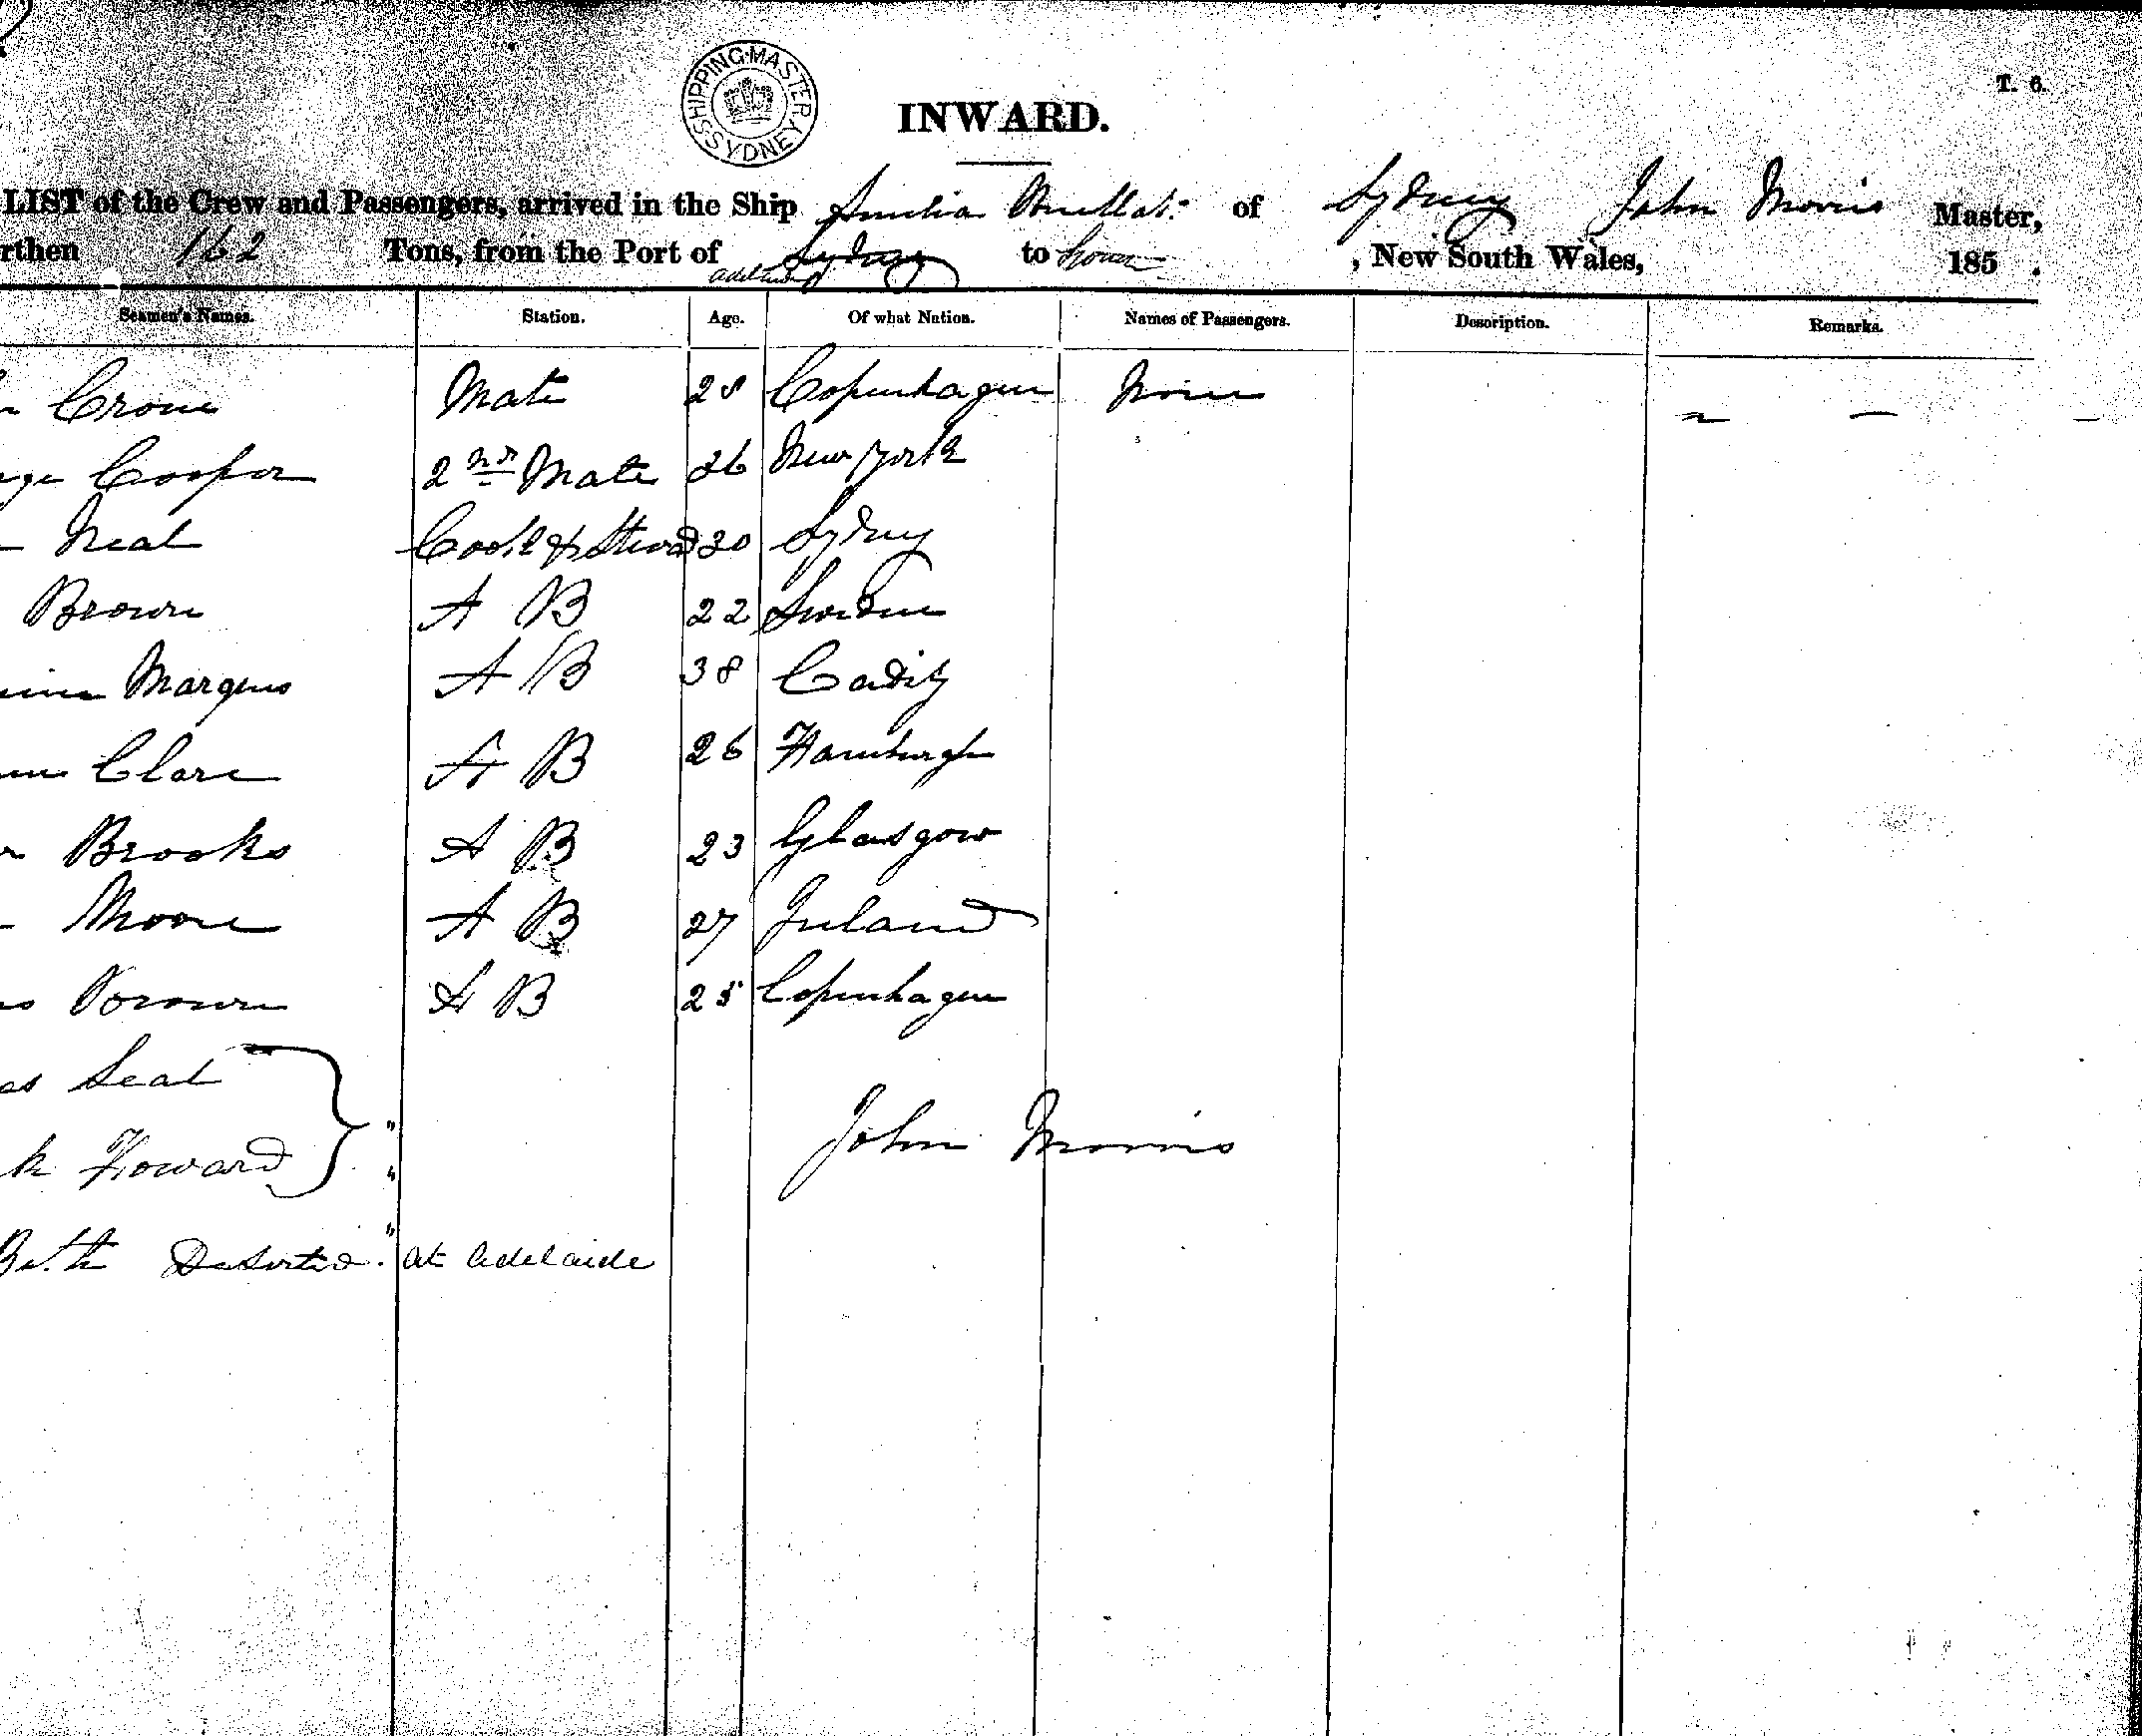 T. 6.
SHIPPING MASTER SYDNEY
INWARD.
LIST of the Crew and Passengers, arrived in the Ship Amelia of Sydney John Morris Master,
rthen 162 Tons, from the Port of Sydney to , New South Wales, 185 .
Seamen's Names. Station. Age. Of what Nation. Names of Passengers. Description. Remarks.
Crone Mate 28 Copenhagen None
Cooper 2nd Mate 26 New York
Neal Cook & Steward 30 Sydney
Brown A B 22 Sweden
Marques A B 38 Cadiz
Clare A B 26 Hamburgh
Brooks A B 23 Glasgow
Moore A B 27 Ireland
Brown A B 25 Copenhagen
as Seal
k Howard
John Morris
Both Deserted at Adelaide